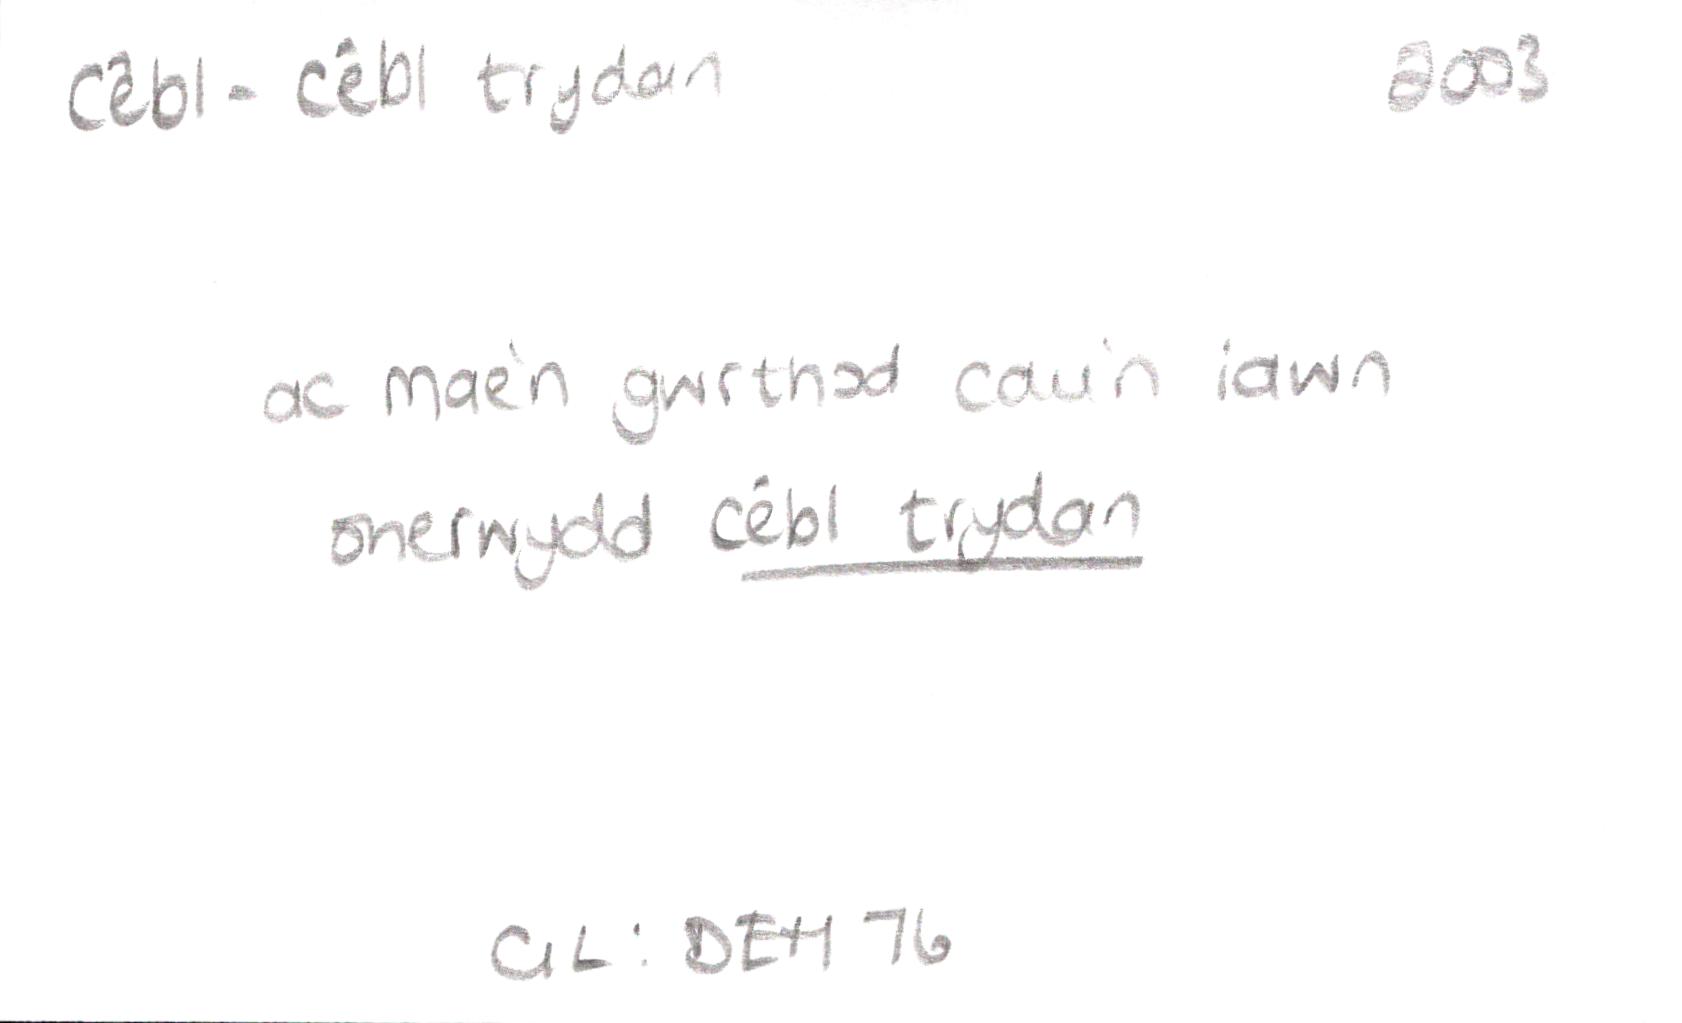 Cêbl - cêbl trydan 2003
ac mae'n gwrthod cau'n iawn
onerwydd cêbl trydan
GL: DEH 76